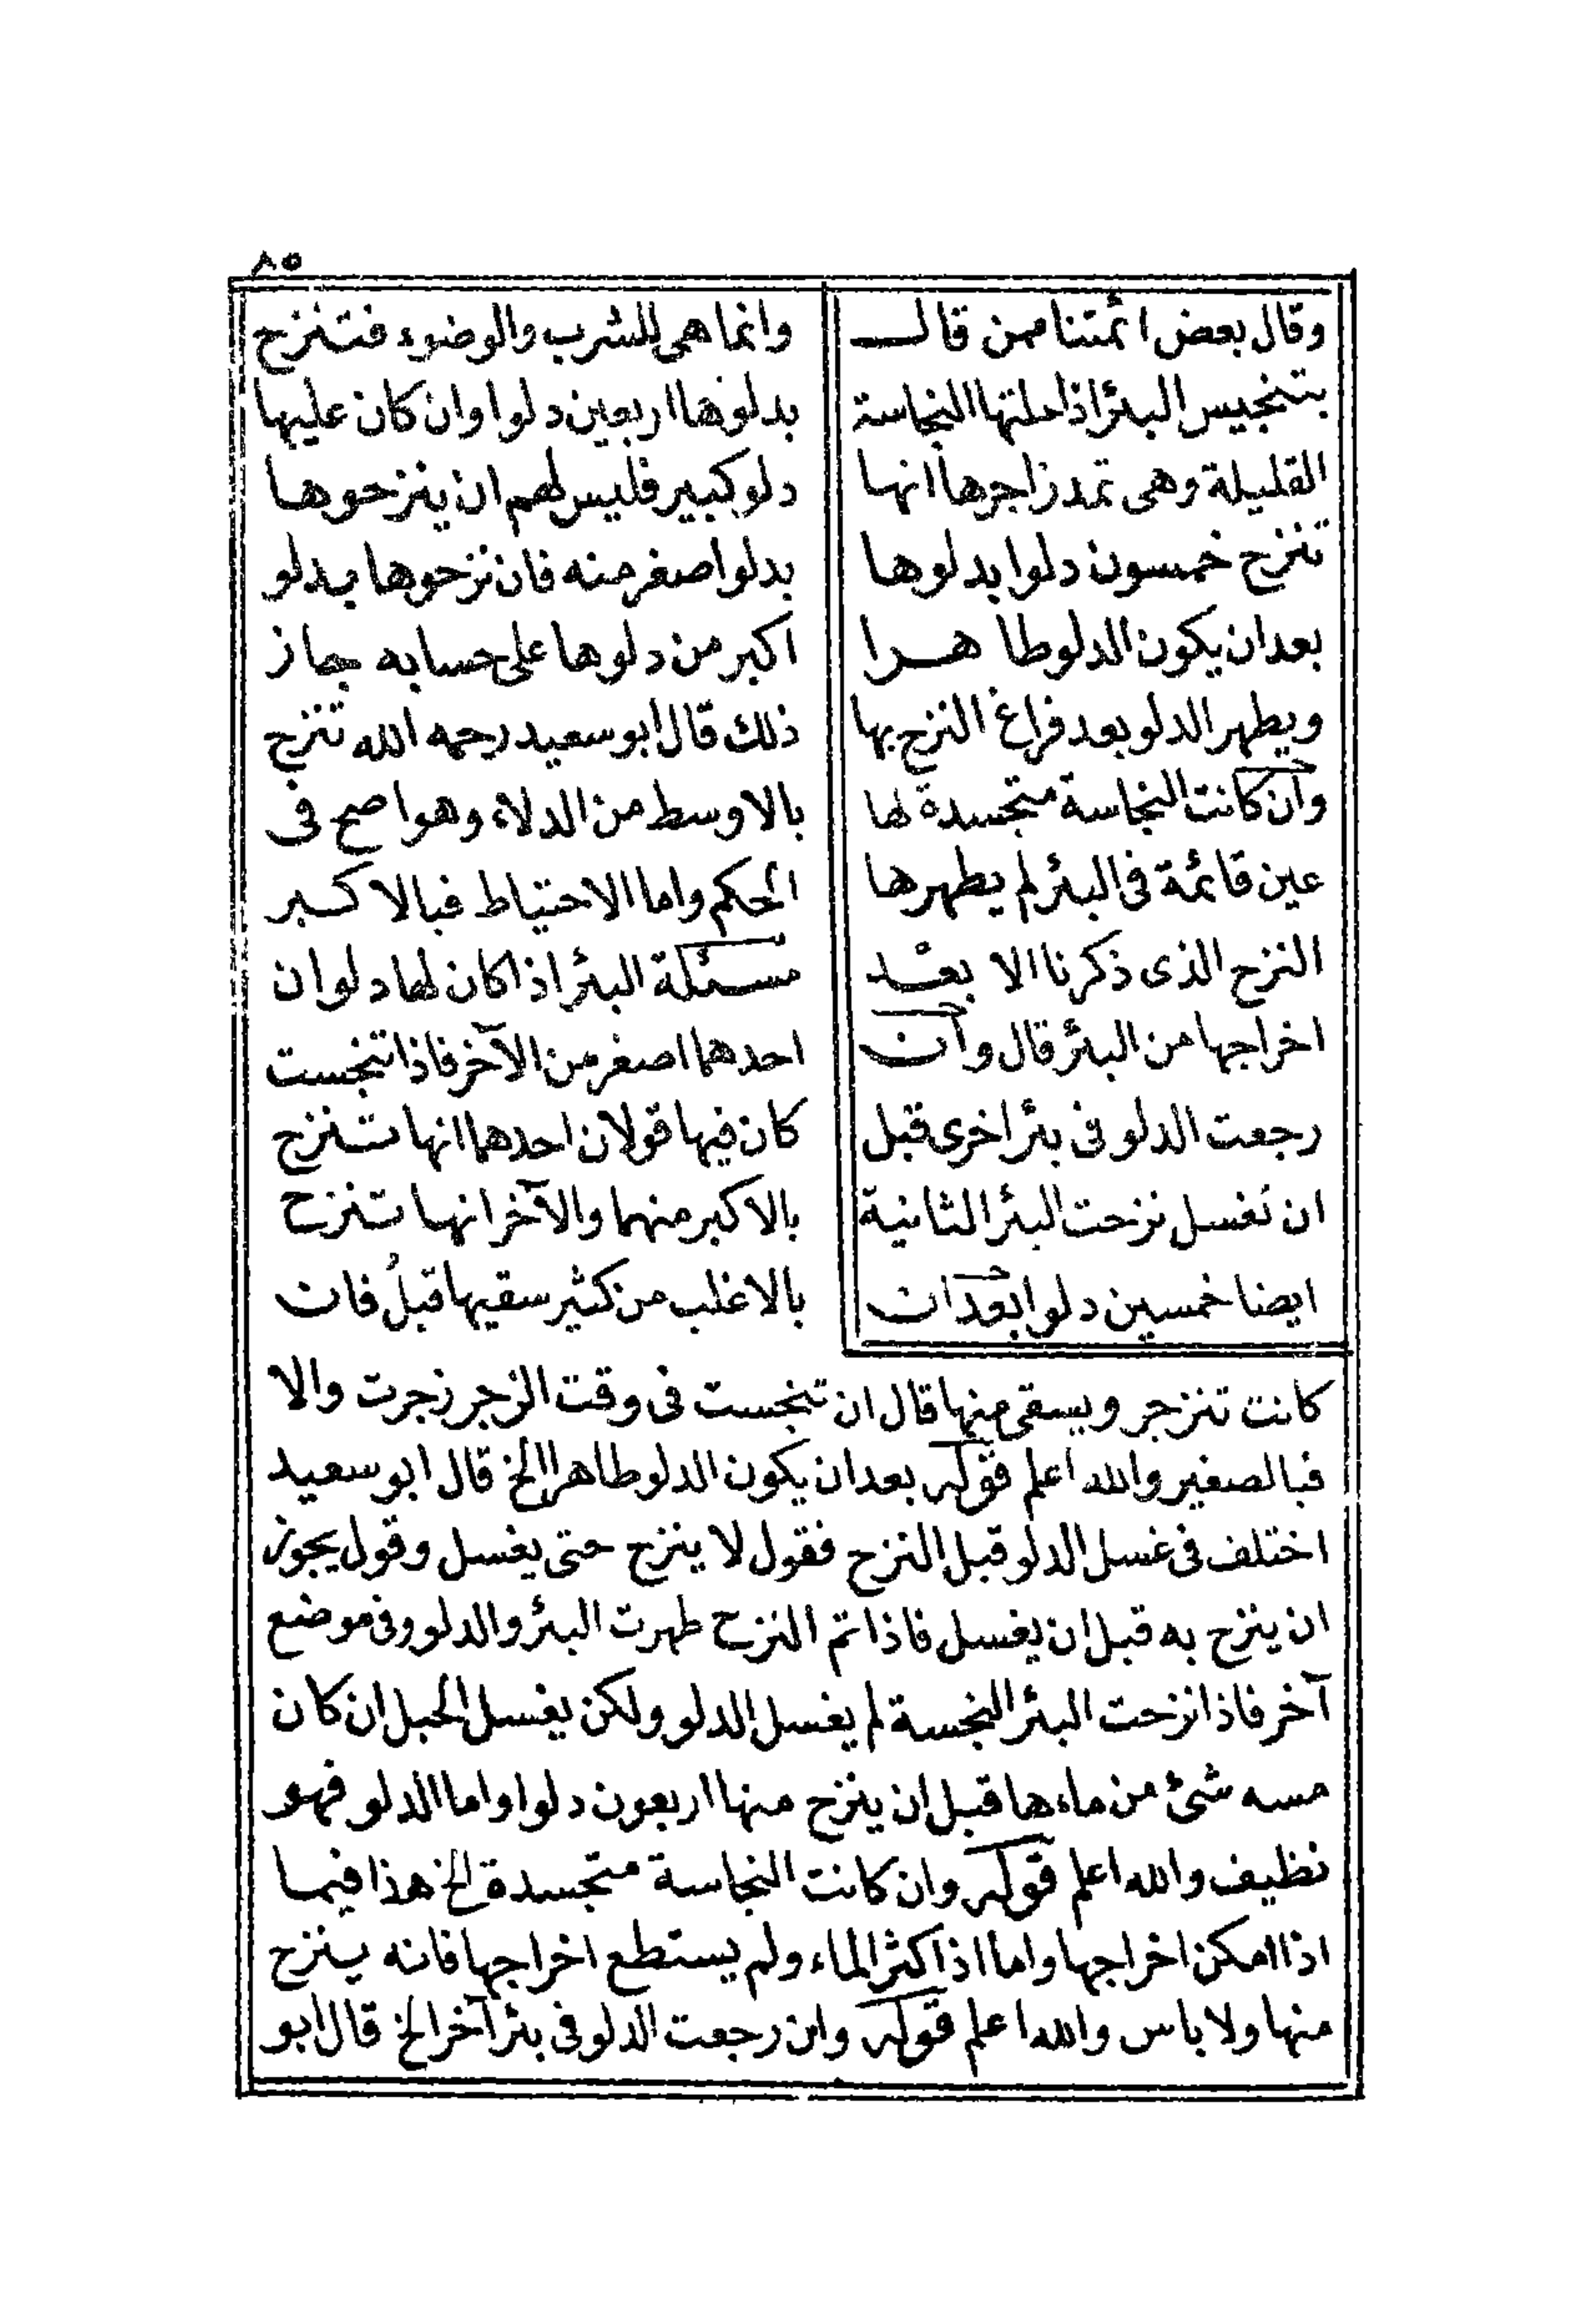 ٨٥
وقال بعض ائمتنا ممن قال
بتنجيس البئر اذا حلتها النجاسة
القليلة وهى تمد زاجرها انها
تنزح خمسون دلوا بدلوها
بعد ان يكون الدلو طاهرا
ويطهر الدلو بعد فراغ النزح بها
وان كانت النجاسة متجسدة لها
عين قائمة فى البئر لم يطهرها
النزح الذى ذكرنا الا بعد
اخراجها من البئر قال وان
رجعت الدلو فى بئر اخرى قبل
ان تغسل نزحت البئر الثانية
ايضا خمسين دلوا بعد ان
وانما هى للشرب والوضوء فتنزح
بدلوها اربعين دلوا وان كان عليها
دلو كبير فليس لهم ان ينزحوها
بدلو اصغر منه فان نزحوها بدلو
اكبر من دلوها على حسابه جاز
ذلك قال ابو سعيد رحمه الله تنزح
بالاوسط من الدلاء وهو اصح فى
الحكم واما الاحتياط فبالاكبر
مسئلة البئر اذا كان لها دلوان
احدهما اصغر من الآخر فاذا تنجست
كان فيها قولان احدهما انها تنزح
بالاكبر منهما والآخر انها تنزح
بالاغلب من كثير سقيها قبل فان
كانت تنزجر ويسقى منها قال ان تنجست فى وقت الزجر زجرت والا
فبالصغير والله اعلم قوله بعد ان يكون الدلو طاهرا الخ قال ابو سعيد
اختلف فى غسل الدلو قبل النزح فقول لا ينزح حتى يغسل وقول يجوز
ان ينزح به قبل ان يغسل فاذا تم النزح طهرت البئر والدلو وفى موضع
آخر فاذا نزحت البئر النجسة لم يغسل الدلو ولكن يغسل الحبل ان كان
مسه شئ من ماءها قبل ان ينزح منها اربعون دلوا واما الدلو فهو
نظيف والله اعلم قوله وان كانت النجاسة متجسدة الخ هذا فيما
اذا امكن اخراجها واما اذا كثر الماء ولم يستطع اخراجها فانه ينزح
منها ولا باس والله اعلم قوله وان رجعت الدلو فى بئر آخر الخ قال ابو